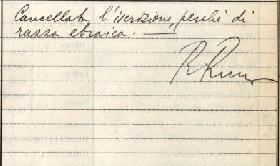 Cancellato l'iscrizione, perchè di
razza ebraica. —